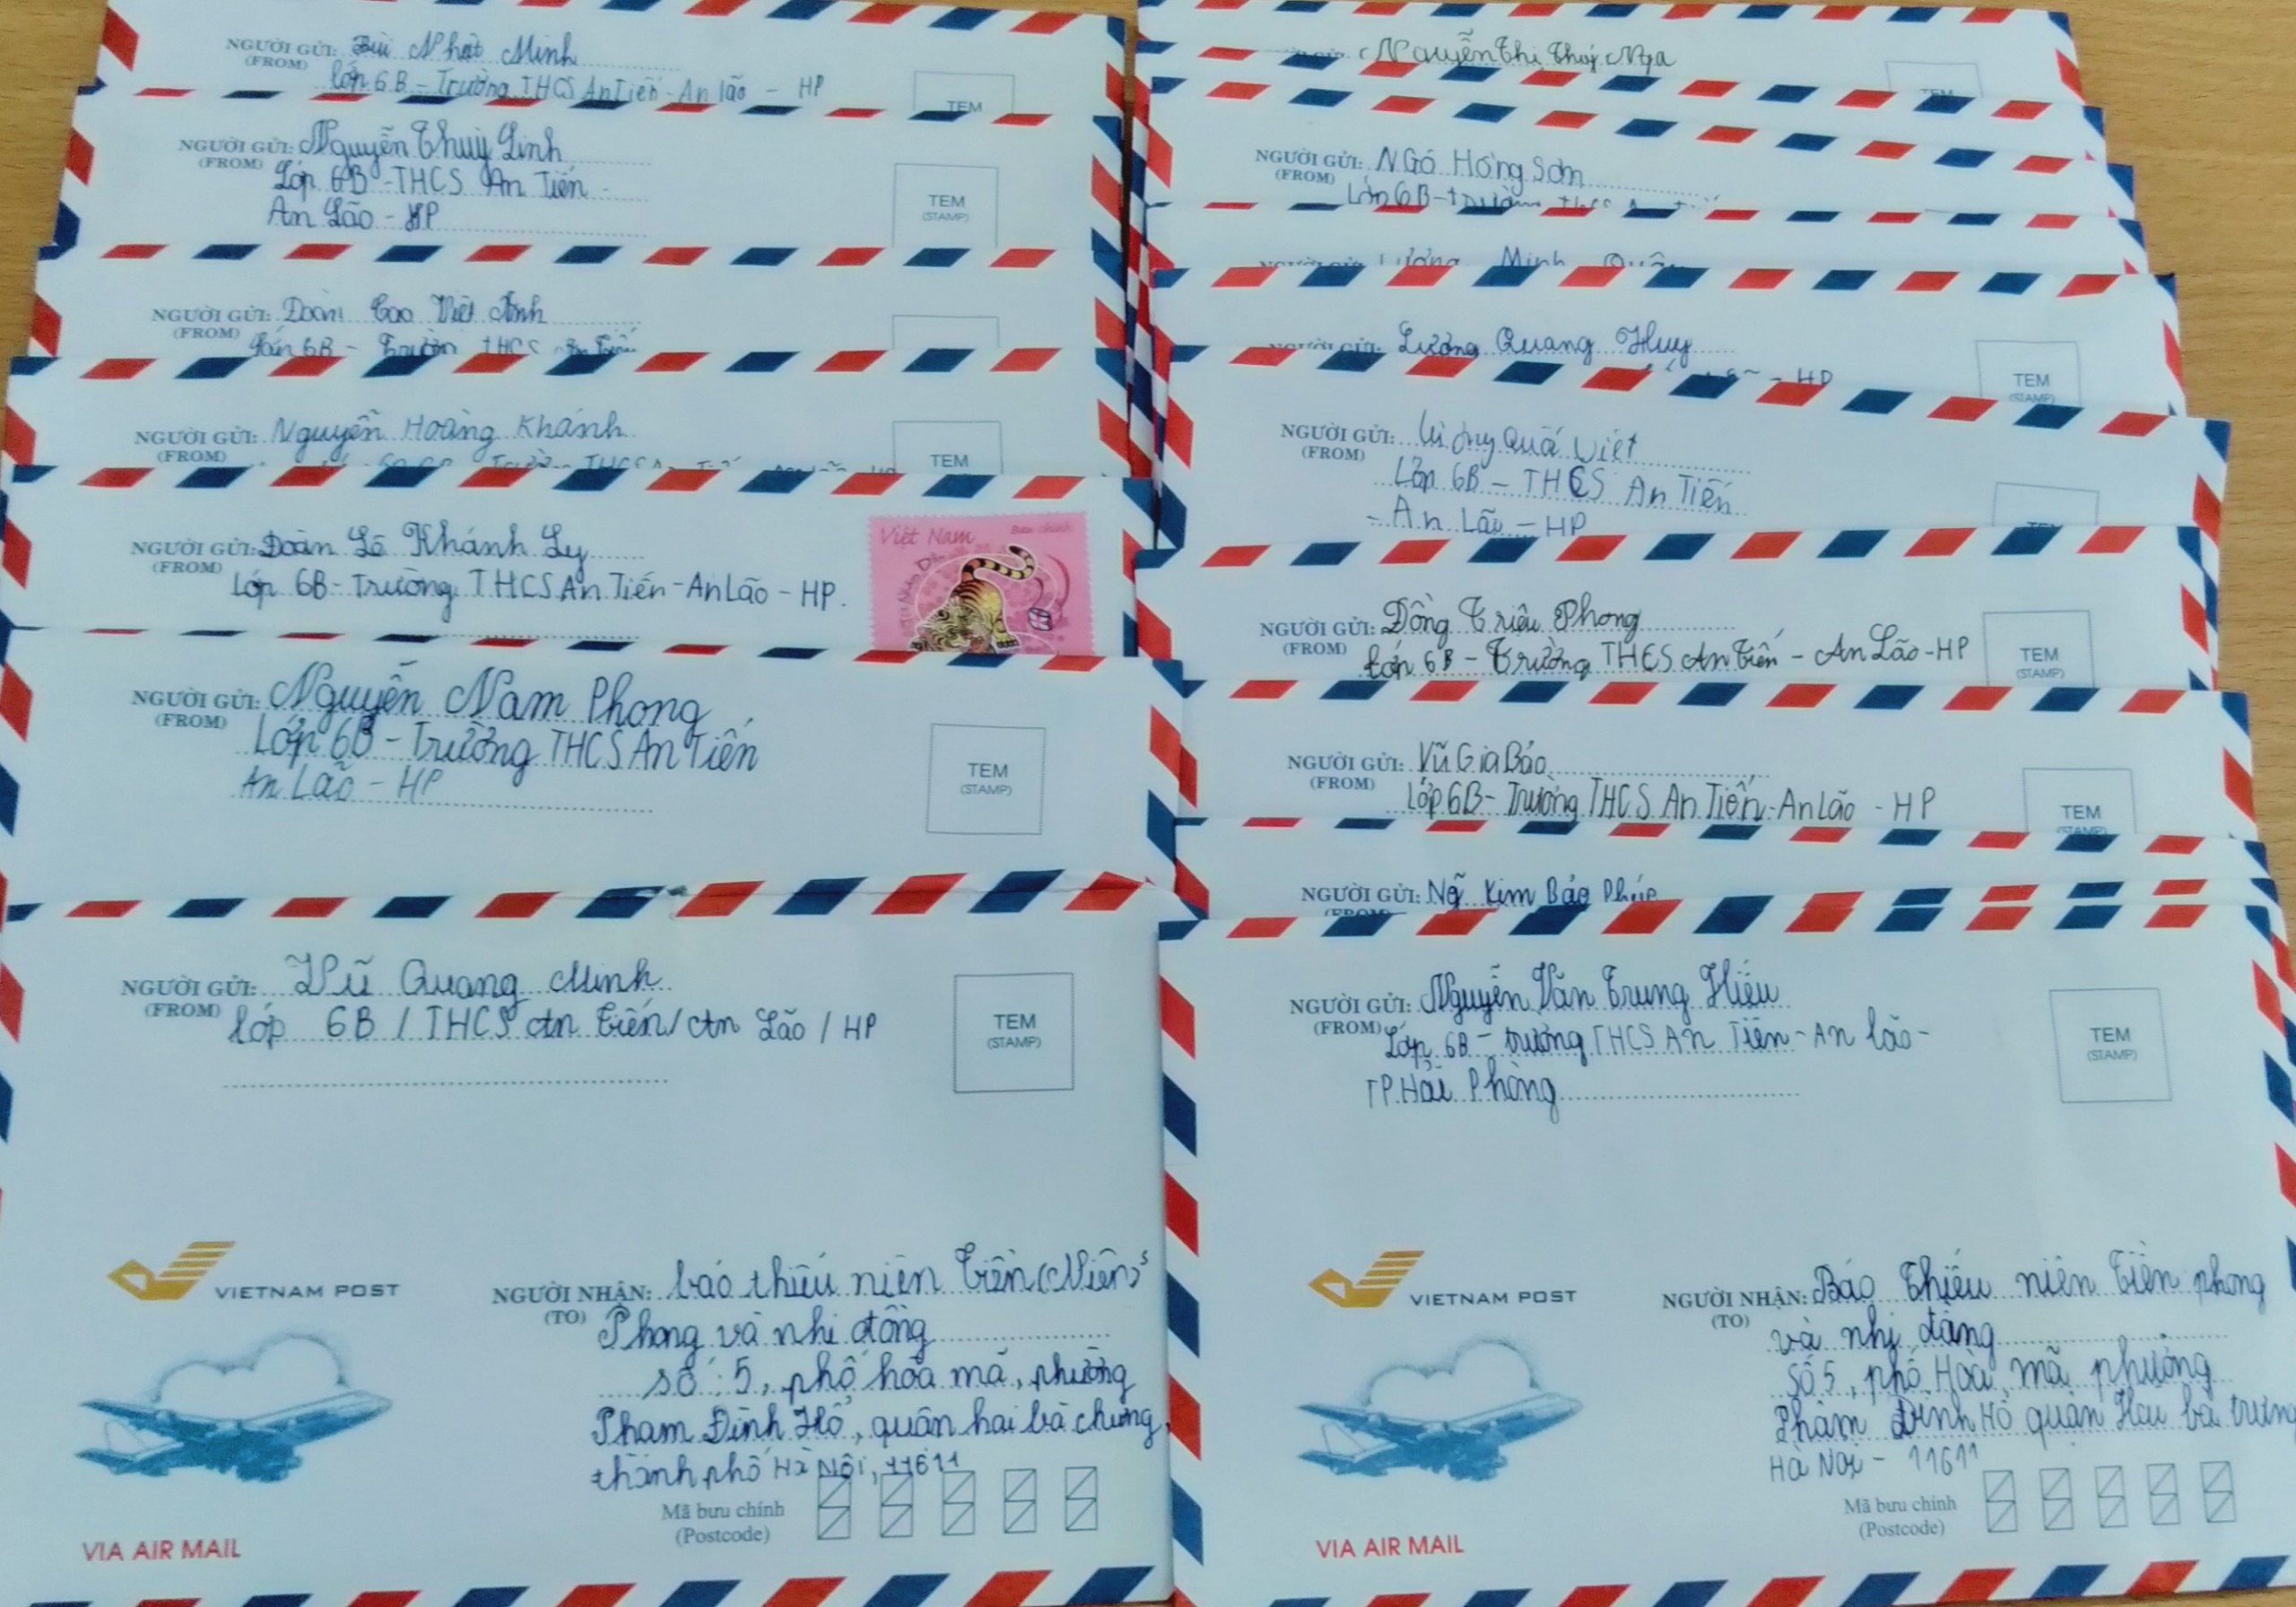 NGƯỜI GỬI: Bùi Nhật Minh
(FROM)
lớp 6B - Trường THCS An Tiến - An lão - HP
TEM
NGƯỜI GỬI: Nguyễn Thuỳ Linh
(FROM)
Lớp 6B - THCS An Tiến
An Lão - HP
TEM
(STAMP)
NGƯỜI GỬI: Đoàn Cao Việt Anh
(FROM)
Lớp 6B - Trường THCS An Tiến
NGƯỜI GỬI: Nguyễn Hoàng Khánh
(FROM)
TEM
NGƯỜI GỬI: Đoàn Lê Khánh Ly
(FROM)
Lớp 6B - Trường THCS An Tiến - An Lão - HP.
Việt Nam
Bưu chính
NGƯỜI GỬI: Nguyễn Nam Phong
(FROM)
Lớp 6B - Trường THCS An Tiến
An Lão - HP
TEM
(STAMP)
NGƯỜI GỬI: Vũ Quang Minh
(FROM)
lớp 6B / THCS An Tiến / An Lão / HP
TEM
(STAMP)
VIETNAM POST
NGƯỜI NHẬN: báo thiếu niên Tiền
(TO)
Phong và nhi đồng
số : 5, phố hòa mã, phường
Phạm Đình Hổ, quận hai bà chưng,
thành phố Hà Nội, 11611
Mã bưu chính
(Postcode)
VIA AIR MAIL
Nguyễn Thị Thuý Nga
TEM
NGƯỜI GỬI: NGô Hồng Sơn
(FROM)
Lớp 6B - trường thcs
Lương Minh Quân
Lương Quang Huy
HP
TEM
(STAMP)
NGƯỜI GỬI: Quế Việt
(FROM)
Lớp 6B - THCS An Tiến
- An Lão - HP
TEM
NGƯỜI GỬI: Đồng Triệu Phong
(FROM)
Lớp 6B - Trường THCS An Tiến - An Lão - HP
TEM
(STAMP)
NGƯỜI GỬI: Vũ Gia Bảo
(FROM)
Lớp 6B - Trường THCS An Tiến - An Lão - HP
TEM
(STAMP)
NGƯỜI GỬI: Ngô Kim Bảo Phúc
(FROM)
NGƯỜI GỬI: Nguyễn Văn Trung Hiếu
(FROM)
Lớp 6B - trường THCS An Tiến - An lão -
TP. Hải Phòng
TEM
(STAMP)
VIETNAM POST
NGƯỜI NHẬN: Báo Thiếu niên Tiền phong
(TO)
và nhi đồng
Số 5, phố Hoà mã phường
Phạm Đình Hổ quận Hai bà trưng
Hà Nội - 11611
Mã bưu chính
(Postcode)
VIA AIR MAIL